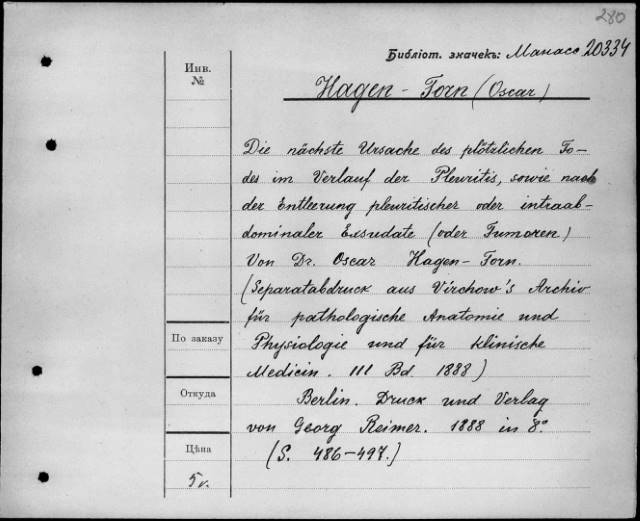 280
Библіот. значекъ: Манасс 20334
Инв.
№
Hagen-Torn (Oscar)
Die nächste Ursache des plötzlichen To-
des im Verlauf der Pleuritis, sowie nach
der Entleerung pleuritischer oder intraab-
dominaler Exsudate (oder Tumoren)
Von Dr. Oscar Hagen-Torn.
(Separatabdruck aus Virchow's Archiv
für pathologische Anatomie und
По заказу
Physiologie und für klinische
Medicin. III Bd. 1888)
Откуда
Berlin. Druck und Verlag
von Georg Reimer. 1888 in 8º
Цѣна
(S. 486-497.)